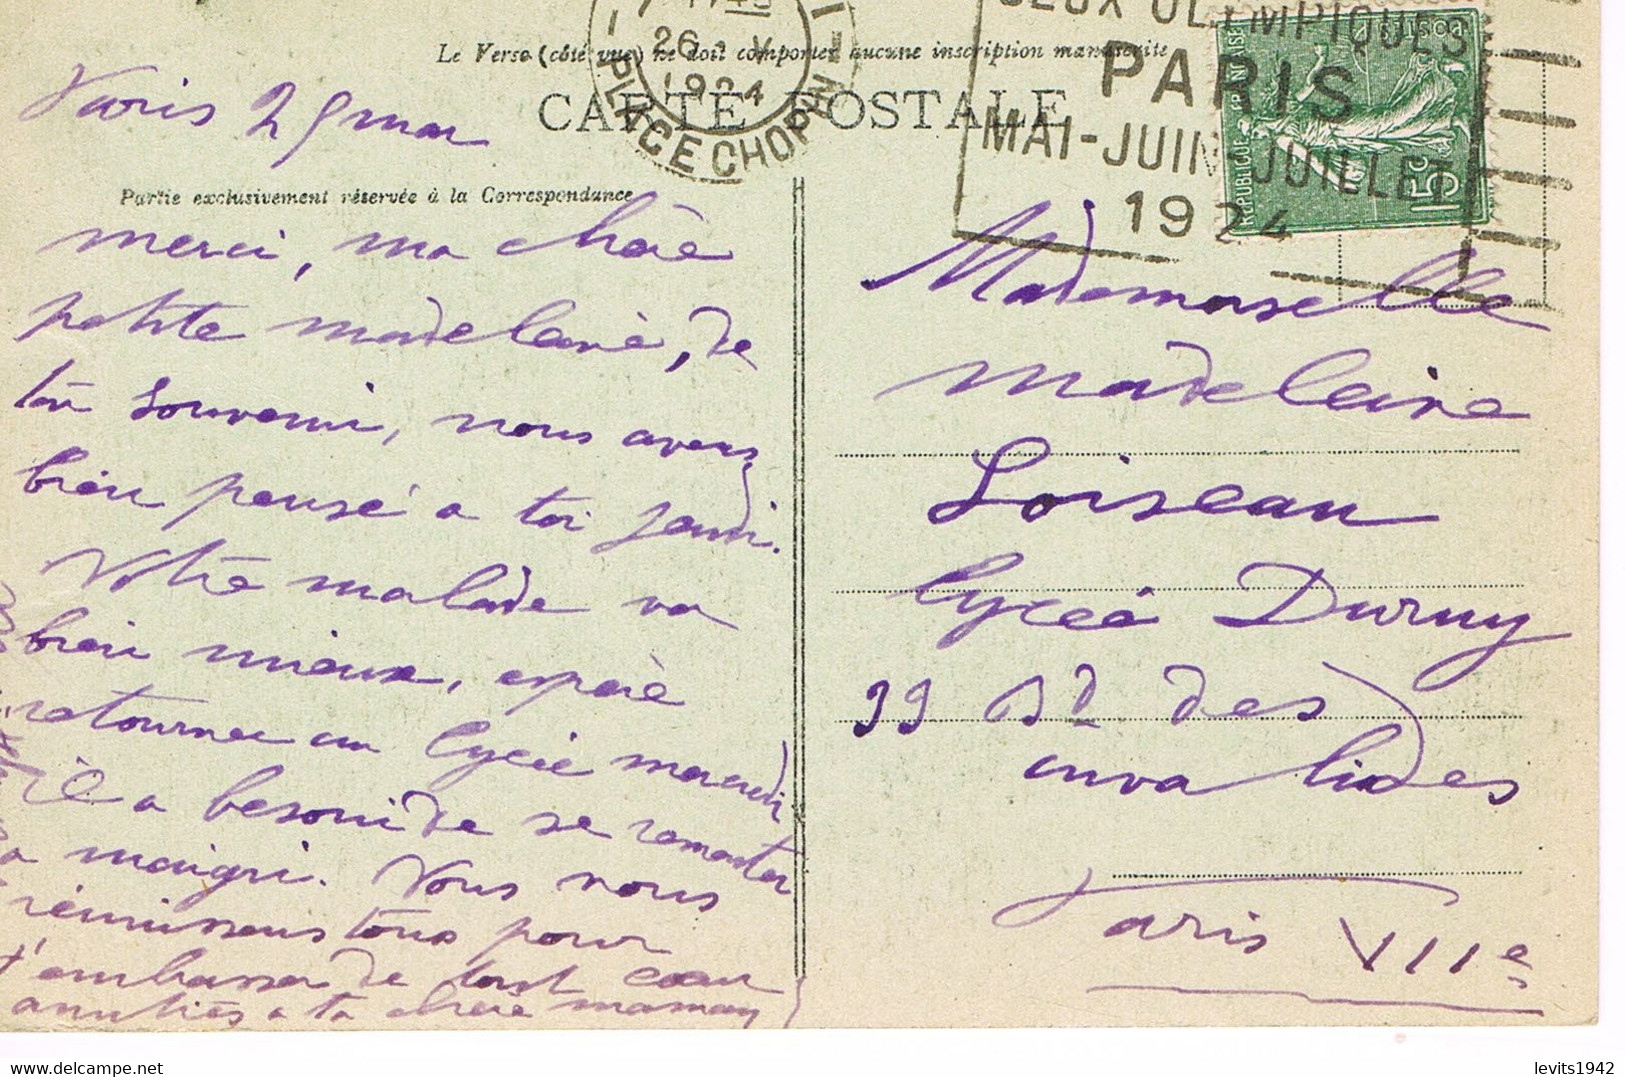 26 - V
1924
PLACE CHOPIN
JEUX OLYMPIQUES
PARIS
MAI-JUIN-JUILLET
1924
REPUBLIQUE FRANÇAISE
POSTES
15c
Le Verso (côté vue) ne doit comporter aucune inscription manuscrite
CARTE POSTALE
Partie exclusivement réservée à la Correspondance
Paris 25 mai
merci, ma chère
petite madeleine, de
ton souvenir, nous avons
bien pensé a toi jeudi.
Votre malade va
bien mieux, espère
retourner au lycée mercredi
il a besoin de se remonter
a maigri. Vous nous
réunissons tous pour
t'embrasser de tout cœur
amitiés a ta chère maman
Mademoiselle
madeleine
Loiseau
lycée Duruy
33 Bd des
invalides
Paris VIIe
levits1942